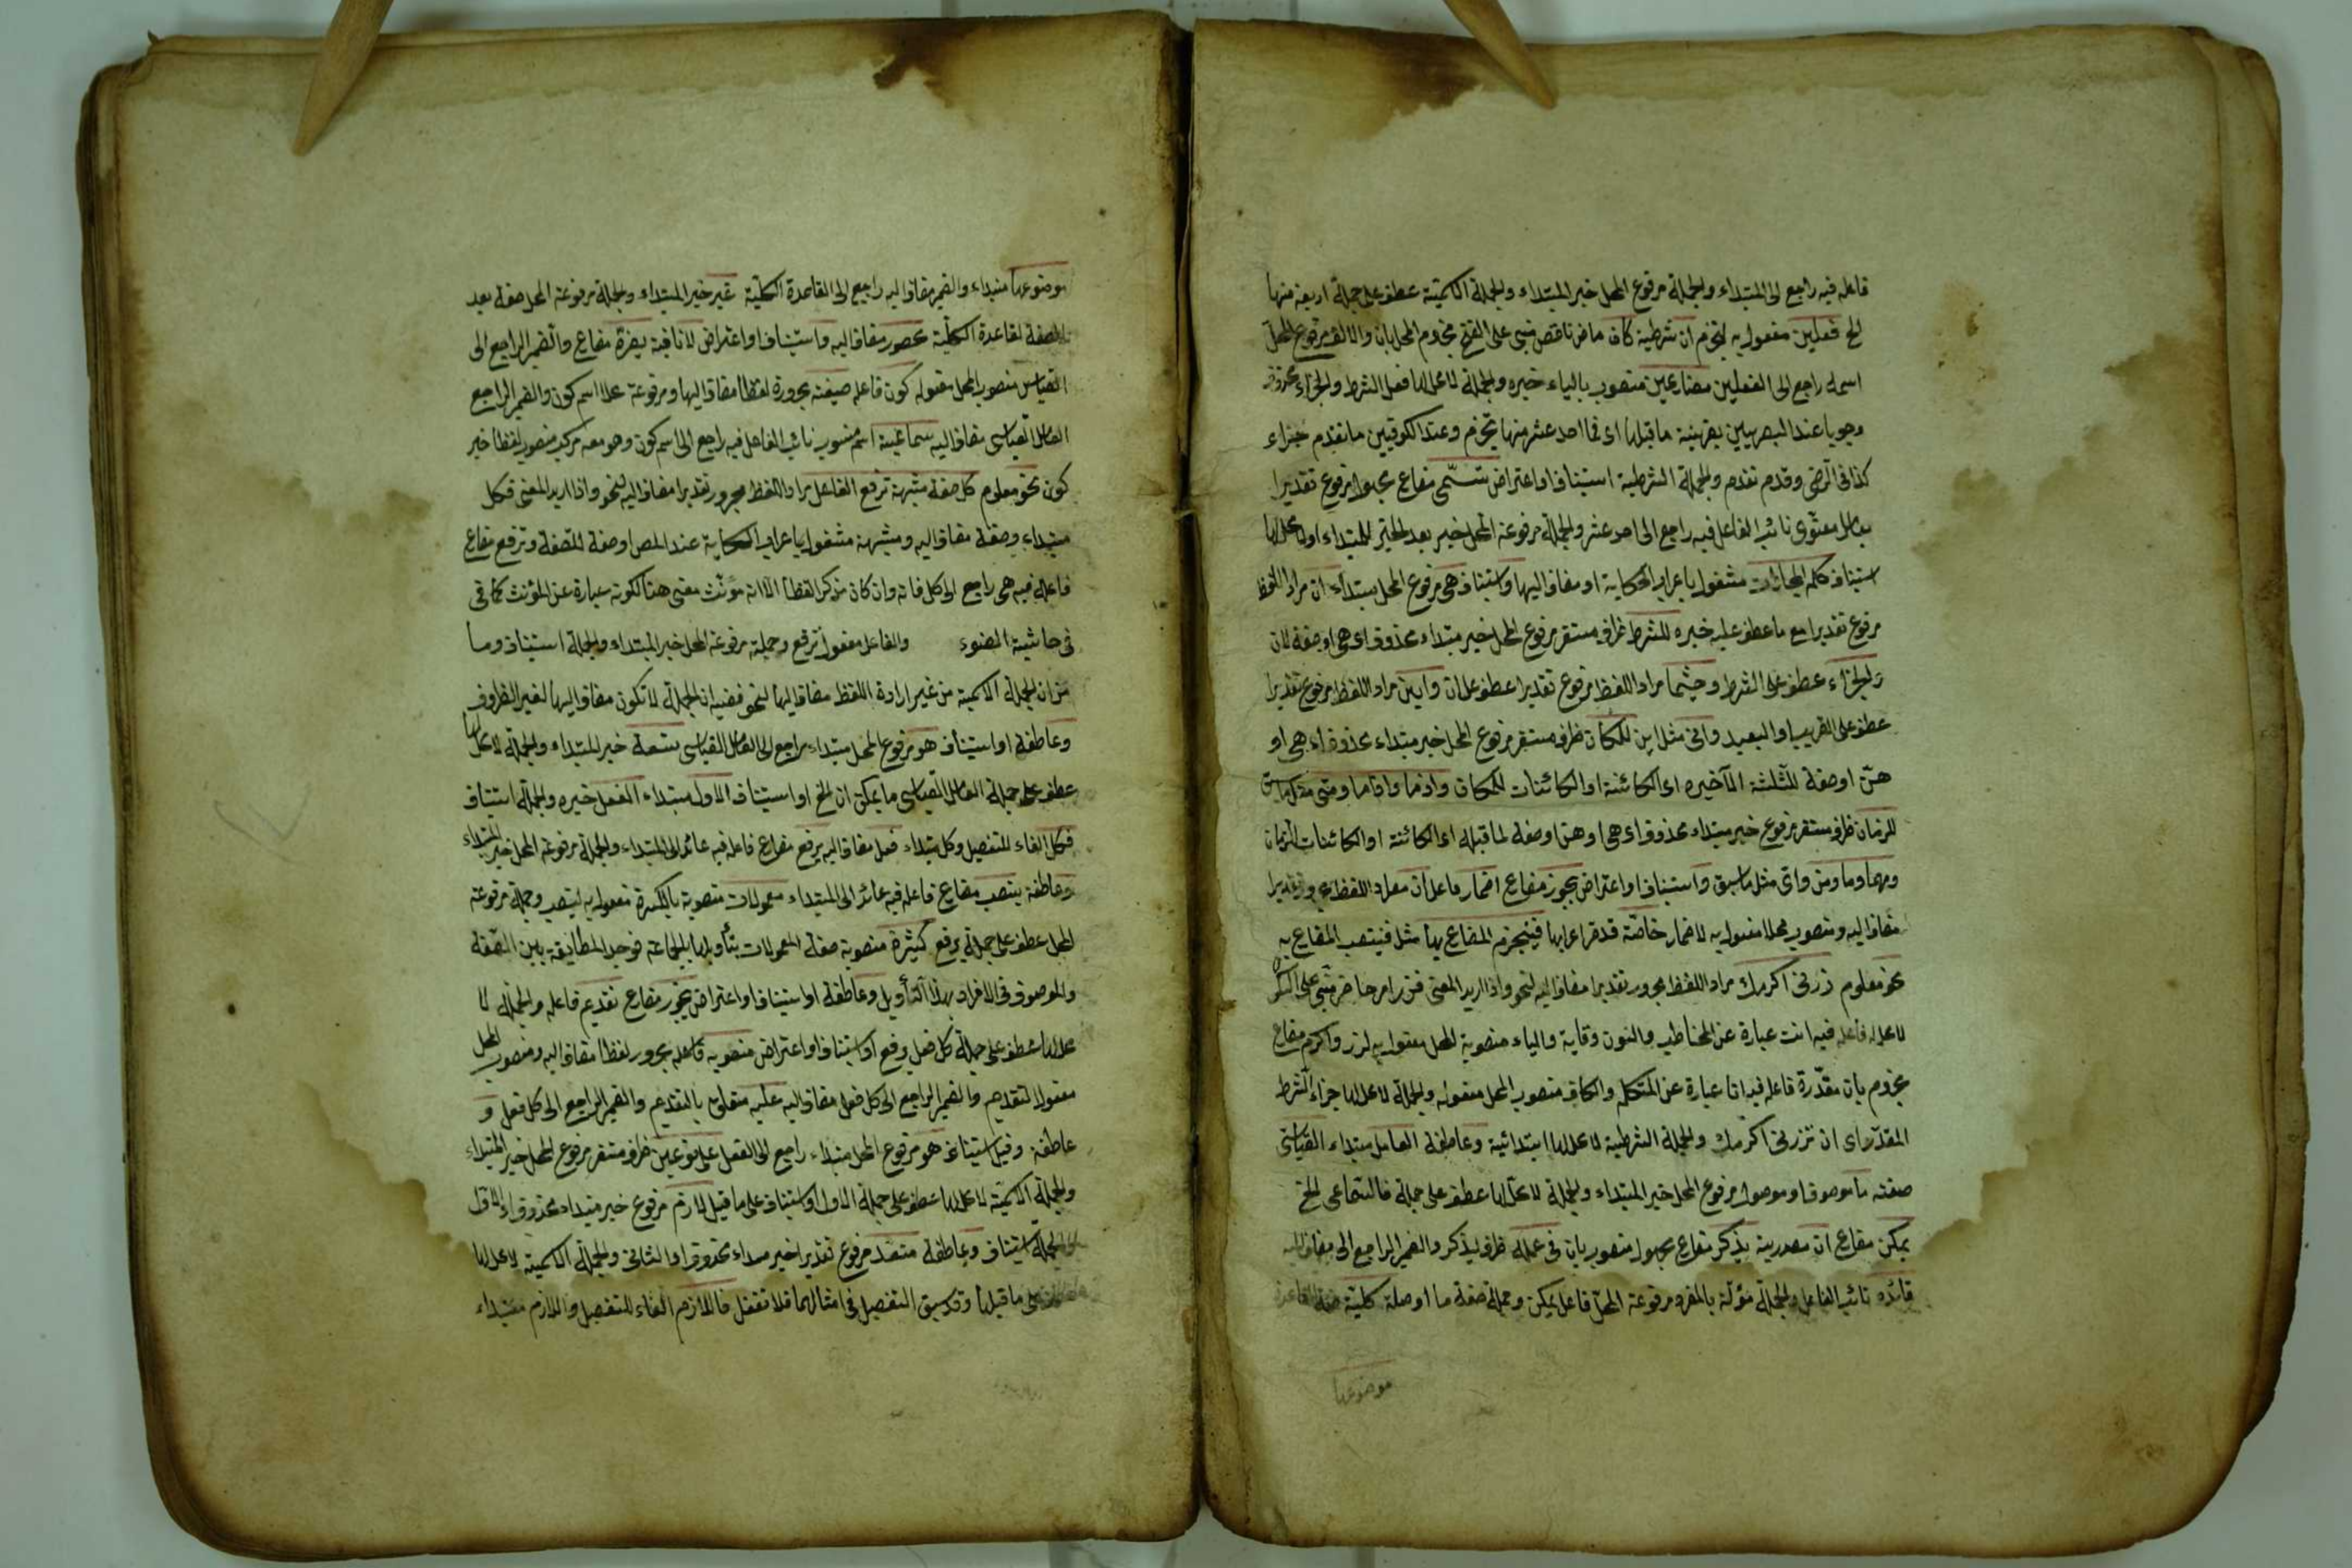 فاعله فيه راجع الى المبتداء والجملة مرفوع المحل خبر المبتداء والجملة الاسمية عطف على جملة اربعة منها
الخ فعلين مفعول به لتجزم ان شرطية كان ماض ناقص مبنى على الفتح مجزوم المحل بان والالف مرفوع المحل
اسمه راجع الى الفعلين مضارعين منصوب بالياء خبره والجملة لا محل لها فعل الشرط والجزاء محذوف
وجوبا عند البصريين بقرينة ما قبلها اى فا احد عشر منها تجزم وعند الكوفيين ما تقدم جزاء
كذا فى الرضى وقدم تقدم والجملة الشرطية استيناف او اعتراض تسمّى مضارع مجهول مرفوع تقديرا
بعامل معنوى نائب الفاعل فيه راجع الى احد عشر والجملة مرفوعة المحل خبر بعد الخبر للمبتداء او لا محل لها
استيناف كلم المجازات مشغول باعراب الحكاية او مضاف اليها واستيناف هى مرفوع المحل مبتداء ان مراد اللفظ
مرفوع تقديرا مع ما عطف عليه خبره للشرط ظرف مستقر مرفوع المحل خبر مبتداء محذوف اى هى او صفة لان
والجزاء عطف على الشرط وحيثما مراد اللفظ مرفوع تقديرا عطف على ان واين مراد اللفظ مرفوع تقديرا
عطف على القريب او البعيد وانى مثل اين للمكان ظرف مستقر مرفوع المحل خبر مبتداء محذوف اى هى او
هنّ او صفة للثلثة الاخيره اى الكائنة او الكائنات للمكان واذما واذاما ومتى مثل ما سبق
للزمان ظرف مستقر مرفوع خبر مبتداء محذوف اى هى او هن او صفة لما قبله اى الكائنة او الكائنات للزمان
ومهما وما ومن واى مثل ما سبق واستيناف او اعتراض يجوز مضارع اضمار فاعل ان مراد اللفظ تقديرا
مضاف اليه ومنصوب محلا مفعول به لاضمار خاصّة قد مر اعرابها فينجزم المضارع بها مثل فينتصب المضارع به
نحو معلوم زرنى اكرمك مراد اللفظ مجرور تقديرا مضاف اليه لنحو واذا اريد المعنى فزر امر حاضر مبنى على السكون
لا محل له فاعله فيه انت عبارة عن المخاطب والنون وقاية والياء منصوبة المحل مفعول به لزر واكرم مضارع
مجزوم بان مقدّرة فاعله فيه انا عبارة عن المتكلم والكاف منصوب المحل مفعوله والجملة لا محل لها جزاء الشرط
المقدّر اى ان تزرنى اكرمك والجملة الشرطية لا محل لها ابتدائية وعاطفة العامل مبتداء القياسى
صفته ما موصوف او موصول مرفوع المحل خبر المبتداء والجملة لا محلّ لها عطف على جملة فالسماعى الخ
يمكن مضارع ان مصدرية يذكر مضارع مجهول منصوب بان فى عمله ظرف ليذكر والضمير الراجع الى مضاف اليه
قائده نائب الفاعل والجملة مؤلة بالمفرد مرفوعة المحل فاعل يمكن وجملة صفة ما او صلة كلية صفة القاعدة
موضوعها
موضوعها مبتداء والضمير مضاف اليه راجع الى القاعدة الكلية غير خبر المبتداء والجملة مرفوعة المحل صفة بعد
الصفة لقاعدة الكلية محصور مضاف اليه واستيناف او اعتراض لا نافية يضرّه مضارع والضمير الراجع الى
القياس منصوب المحل مفعوله كون فاعله صيغته مجرورة لفظا مضاف اليها ومرفوعة محلا اسم كون والضمير الراجع
العامل القياسى مضاف اليه سماعية اسم منسوب نائب الفاعل فيه راجع الى اسم كون وهو معه مركب منصوب لفظا خبر
كون نحو معلوم كل صفة مشبهة ترفع الفاعل مراد اللفظ مجرور تقديرا مضاف اليه لنحو واذا اريد المعنى فكل
مبتداء وصفة مضاف اليه ومشبهة مشغول باعراب الحكاية عند المص او صفة للصّفة وترفع مضارع
فاعله فيه هى راجع الى كل فانه وان كان مذكر لفظا الا انه مؤنّث معنى هنا لكونه عبارة عن المؤنث كما فى
فى حاشية الضوء والفاعل مفعول ترفع وجملته مرفوعة المحل خبر المبتداء والجملة استيناف وما
من ان الجملة الاسمية من غير ارادة اللفظ مضاف اليها لنحو ففيه ان الجملة لا تكون مضاف اليها لغير الظروف
وعاطفة او استيناف هو مرفوع المحل مبتداء راجع الى العامل القياسى تسعة خبر المبتداء والجملة لا محل لها
عطف على جملة العامل القياسى ما يمكن ان الخ او استيناف الاول مبتداء الفعل خبره والجملة استيناف
فكل الفاء للتفصيل وكل مبتداء فعل مضاف اليه يرفع مضارع فاعله فيه عائد الى المبتداء والجملة مرفوعة المحل خبر المبتداء
وعاطفة ينصب مضارع فاعله فيه عائد الى المبتداء معمولات منصوبة بالكسرة مفعول به لينصب وجملة مرفوعة
المحل عطف على جملة يرفع كثيرة منصوبة صفة المعمولات بتأويلها بالجماعة فوجد المطابقة بين الصّفة
والموصوف فى الافراد بهذا التأويل وعاطفة او استيناف او اعتراض يجوز مضارع تقديم فاعله والجملة لا
محل لها عطف على جملة كل فعل يرفع او استيناف او اعتراض منصوبه فاعله مجرور لفظا مضاف اليه ومنصوب المحل
مفعول لتقديم والضمير الراجع الى كل فعل مضاف اليه عليه متعلق بالتقديم والضمير الراجع الى كل فعل و
عاطفة وقيل استيناف هو مرفوع المحل مبتداء راجع الى الفعل على نوعين ظرف مستقر مرفوع المحل خبر المبتداء
والجملة الاسمية لا محل لها عطف على جملة الاول او استيناف على ما قيل لازم مرفوع خبر مبتداء محذوف اى الاول
والجملة استيناف وعاطفة متعد مرفوع تقديرا خبر مبتداء محذوف اى والثانى والجملة الاسمية لا محل لها
على ما قبلها وقد سبق التفصيل فى امثالهما فلا تغفل فاللازم الفاء للتفصيل واللازم مبتداء